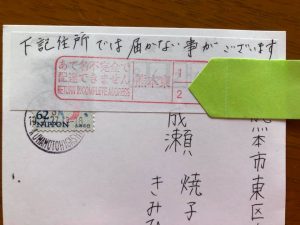 下記住所では届かない事がございます
あて名不完全で
配達できません
RETURN INCOMPLETE ADDRESS
熊本東
1
2
62
NIPPON
KUMAMOTOHIGASHI
熊本市東区
成瀬 焼子
きみひ